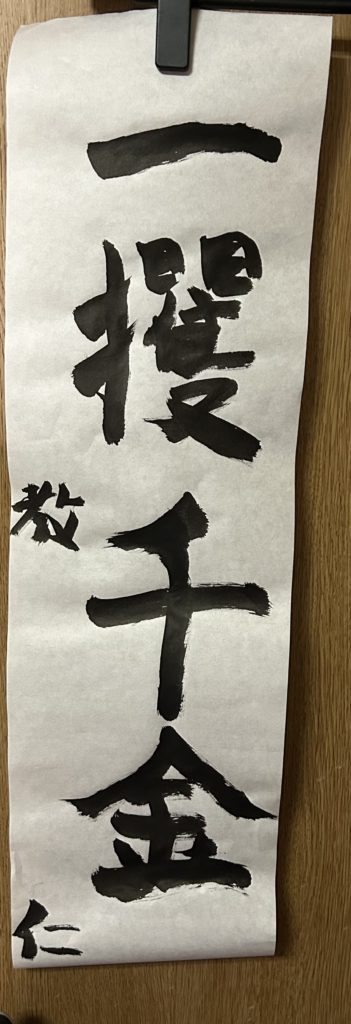 一攫千金
教仁